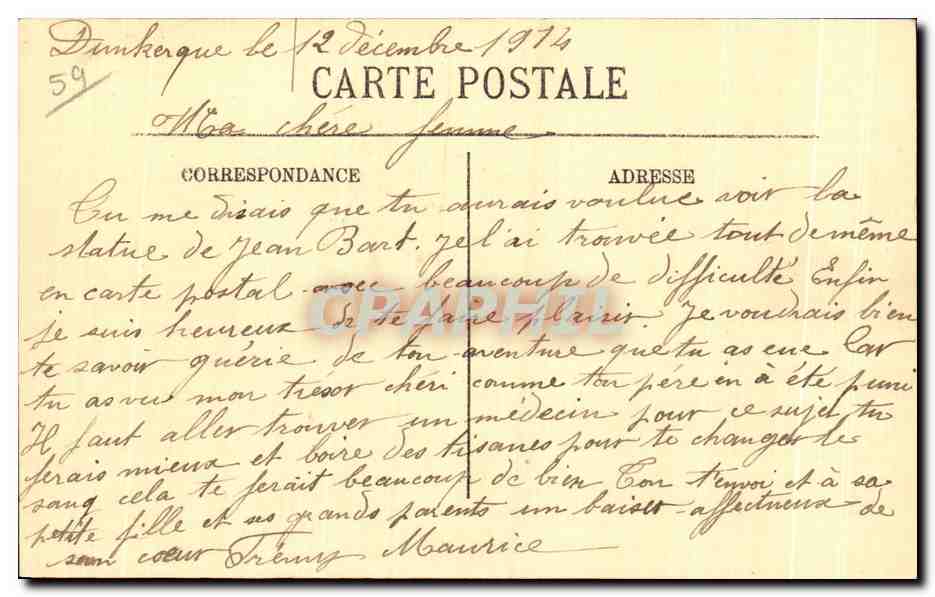 Dunkerque le 12 décembre 1914
59
CARTE POSTALE
Ma chére femme
CORRESPONDANCE
ADRESSE
Tu me disais que tu aurais voulue voir la
statue de Jean Bart. Je l'ai trouvée tout de même
en carte postal avec beaucoup de difficulté Enfin
je suis heureux de te faire plaisir. Je voudrais bien
te savoir guérie de ton aventure que tu as eue Car
tu as vu mon trésor chéri comme ton pére en à été puni
Il faut aller trouver un médecin pour ce sujet, tu
ferais mieux et boire des tisanes pour te changer le
sang cela te ferait beaucoup de bien Ton t'envoi et à sa
petite fille et ses grands parents un baiser affectueux de
son coeur Frémy Maurice
CPAPHIL